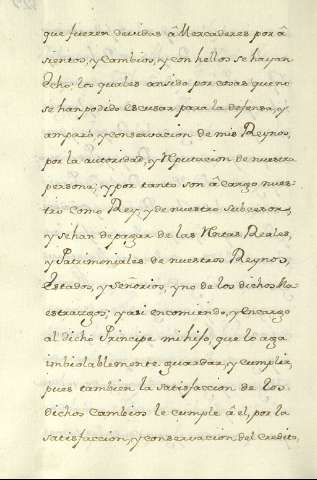 que fueren devidas â Mercaderes por â
sientos, y Cambios, y con hellos se hayan
dcho; los quales ansido por cosas que no
se han podido escusar para la defensa, y
amparo, y conservacion de mis Reynos,
por la autoridad, y Reputacion de nuestra
persona; y por tanto son â cargo nues-
tro como Rey, y de nuestro subcesor,
y se han de pagar de las Rentas Reales,
y Patrimoniales de nuestros Reynos,
Estados, y Señorios, y no de los dichos Ma-
estrazgos; y asi encomiendo, y encargo
al dicho Principe mi hijo, que lo aga
imbiolablemente guardar, y cumplir,
pues tambien la satisfaccion de los
dichos Cambios le cumple â el, por la
satisfaccion, y conservacion del credito,